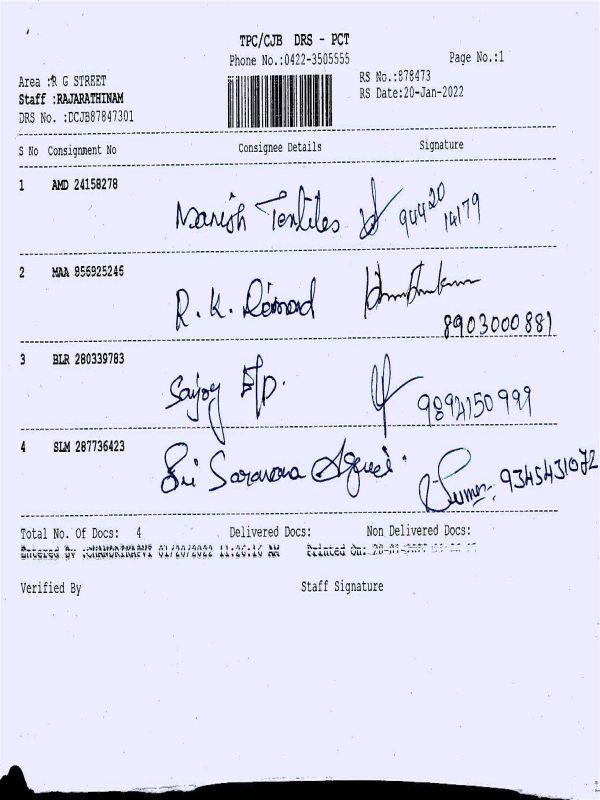 TPC/CJB DRS - PCT
Phone No.:0422-3505555 Page No.:1
Area :R G STREET RS No.:878473
Staff :RAJARATHINAM RS Date:20-Jan-2022
DRS No. :DCJB87847301
S No Consignment No Consignee Details Signature
1 AMD 24158278
Manish Textiles 94420
14179
2 MAA 956925246
R. K. Diamond
8903000881
3 BLR 280339783
Sanjoy 
9894150999
4 SLM 287736423
Sri Saravana 9345431072
Total No. Of Docs: 4 Delivered Docs: Non Delivered Docs:
Entered By : 01/20/2022 11:26:16 AM Printed On:
Verified By Staff Signature